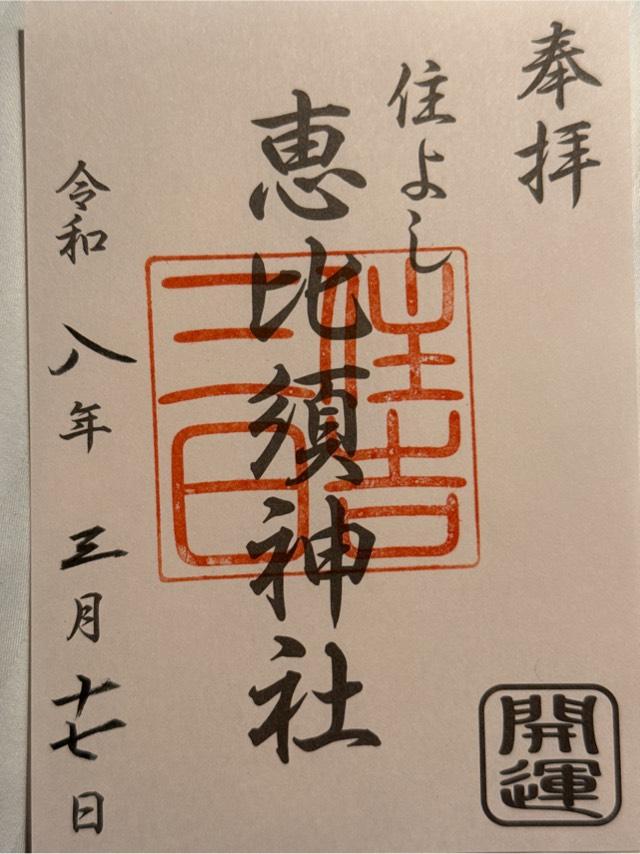 奉拝
住よし
恵比須神社
令和八年三月十七日
開運